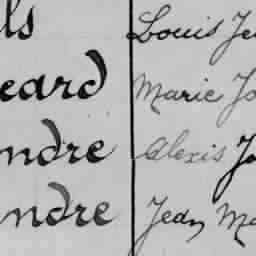 ls Louis Je
eard Marie Jo
ndre Alexis Jo
ndre Jean Ma